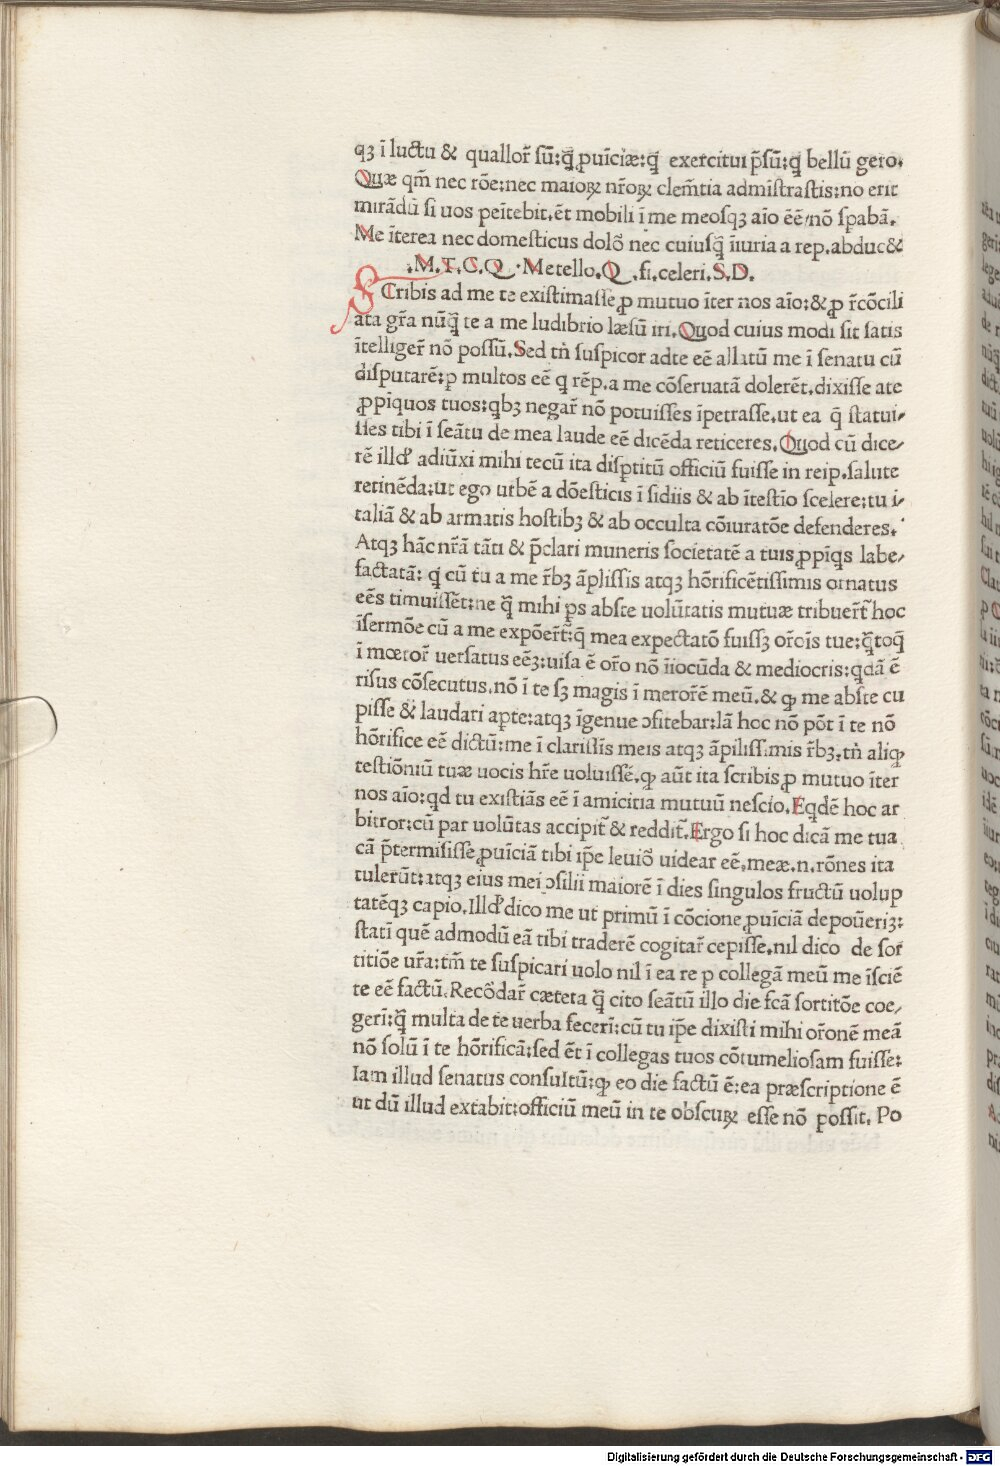 qꝫ ī luctu & quallor̃ sū:q̄ ꝓuīciæ:q̄ exercitui p̄sū:q̄ bellū gero.
Quæ qm̄ nec rōe:nec maioꝝ nr̄oꝝ clem̄tia admīstrastis:no erit
mirādū si uos peītebit.ēt mobili ī me meosqꝫ aīo ēē/nō spabā.
Me īterea nec domesticus dolō nec cuiusq̄ īiuria a rep.abduc&
.M.T.C.Q. Metello.Q.fi.celeri.S.D.
SCribis ad me te existimasse ꝓ mutuo īter nos aīo:& ꝓ r̄cōcili
ata gr̄a nūq̄ te a me ludibrio læsū iri.Quod cuius modi sit satis
ītelliger̃ nō possū.Sed tn̄ suspicor adte eē allatū me ī senatu cū
disputarē:ꝑ multos eē q rēp.a me cōseruatā dolerēt.dixisse ate
ꝓpīquos tuos:qbꝫ negar̃ nō potuisses īpetrasse.ut ea q̄ statui/
sses tibi ī seātu de mea laude eē dicēda reticeres.Quod cū dice/
rē illd' adiūxi mihi tecū ita disptitū officiū fuisse in reip.salute
retinēda:ut ego urbē a dōesticis ī sidiis & ab ītestīo scelere:tu i/
taliā & ab armatis hostibꝫ & ab occulta cōiuratōe defenderes.
Atqꝫ hāc nr̄ā tāti & p̄clari muneris societatē a tuis ꝓpīqs labe/
factatā: q cū tu a me r̄bꝫ āplissis atqꝫ hōrificētissimis ornatus
eēs timuissēt:ne q̄ mihi ps abste uolūtatis mutuæ tribuer̃t hoc
īsermōe cū a me expōer̃t:q̄ mea expectatō fuissꝫ or̄ois tue:q̄toq̄
ī mœror̃ uersatus eēꝫ:uisa ē or̄o nō īiocūda & mediocris:qdā ē
risus cōsecutus.nō ī te sꝫ magis ī merorē meū.& ꝙ me abste cu
pisse & laudari apte:atqꝫ īgenue ↄfitebar:Iā hoc nō pōt ī te nō
hōrifice eē dictū:me ī clarissīs meis atqꝫ āpilissimis r̄bꝫ.tn̄ aliꝙ
testiōniū tuæ uocis hr̄e uoluissē.ꝙ aūt ita scribis ꝓ mutuo īter
nos aīo:qd tu existiās eē ī amicitia mutuū nescio.Eqdē hoc ar
bitror:cū par uolūtas accipit̄ & reddit̄.Ergo si hoc dicā me tua
cā p̄termisisse ꝓuīciā tibi ip̄e leuiō uidear eē.meæ.n.rōnes ita
tulerūt:atqꝫ eius mei ↄsilii maiorē ī dies singulos fructū uolup
tatēqꝫ capio.Illd' dico me ut primū ī cōcione ꝓuīciā depoūeriꝫ:
statī quē admodū eā tibi traderē cogitar̃ cepisse.nil dico de sor
titiōe ur̄a:tm̄ te suspicari uolo nil ī ea re ꝑ collegā meū me īsciē
te eē factū.Recōdar̃ cæteta q̄ cito seātū illo die fcā sortitōe coe/
gerī:q̄ multa de te uerba fecerī:cū tu ip̄e dixisti mihi or̄onē meā
nō solū ī te hōrificā:sed ēt ī collegas tuos cōtumeliosam fuisse:
Iam illud senatus consultū:ꝙ eo die factū ē:ea præscriptione ē
ut dū illud extabit:officiū meū in te obscuꝝ esse nō possit. Po
Digitalisierung gefördert durch die Deutsche Forschungsgemeinschaft - DFG